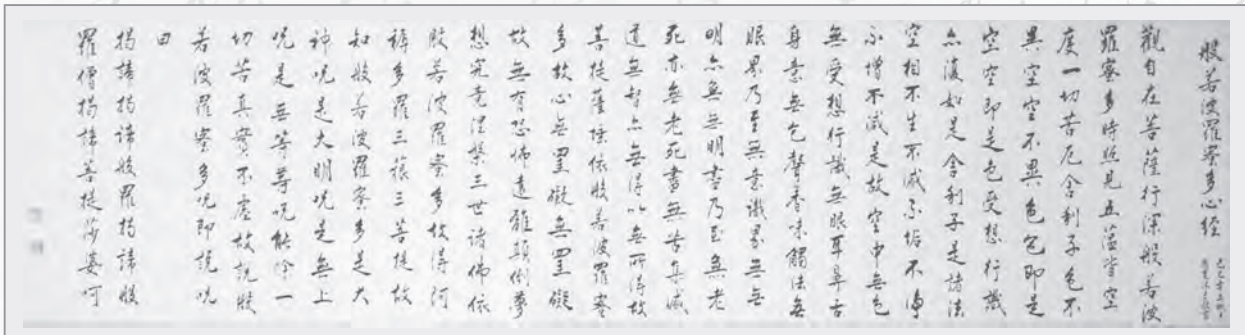 般若波羅蜜多心经
觀自在菩薩行深般若波
羅蜜多時照見五蕴皆空
度一切苦厄舍利子色不
異空空不異色色即是
空空即是色受想行識
亦復如是舍利子是諸法
空相不生不滅不垢不净
不增不減是故空中無色
無受想行識無眼耳鼻舌
身意無色聲香味觸法無
眼界乃至無意識界無無
明亦無無明盡乃至無老
死亦無老死盡無苦集滅
道無智亦無得以無所得故
菩提薩埵依般若波羅蜜
多故心無罣礙無罣礙
故無有恐怖遠離顛倒夢
想究竟涅槃三世諸佛依
般若波羅蜜多故得阿
耨多羅三藐三菩提故
知般若波羅蜜多是大
神呪是大明呪是無上
呪是無等等呪能除一
切苦真實不虚故説般
若波羅蜜多呪即説呪
曰
揭諦揭諦般羅揭諦般
羅僧揭諦菩提莎婆呵